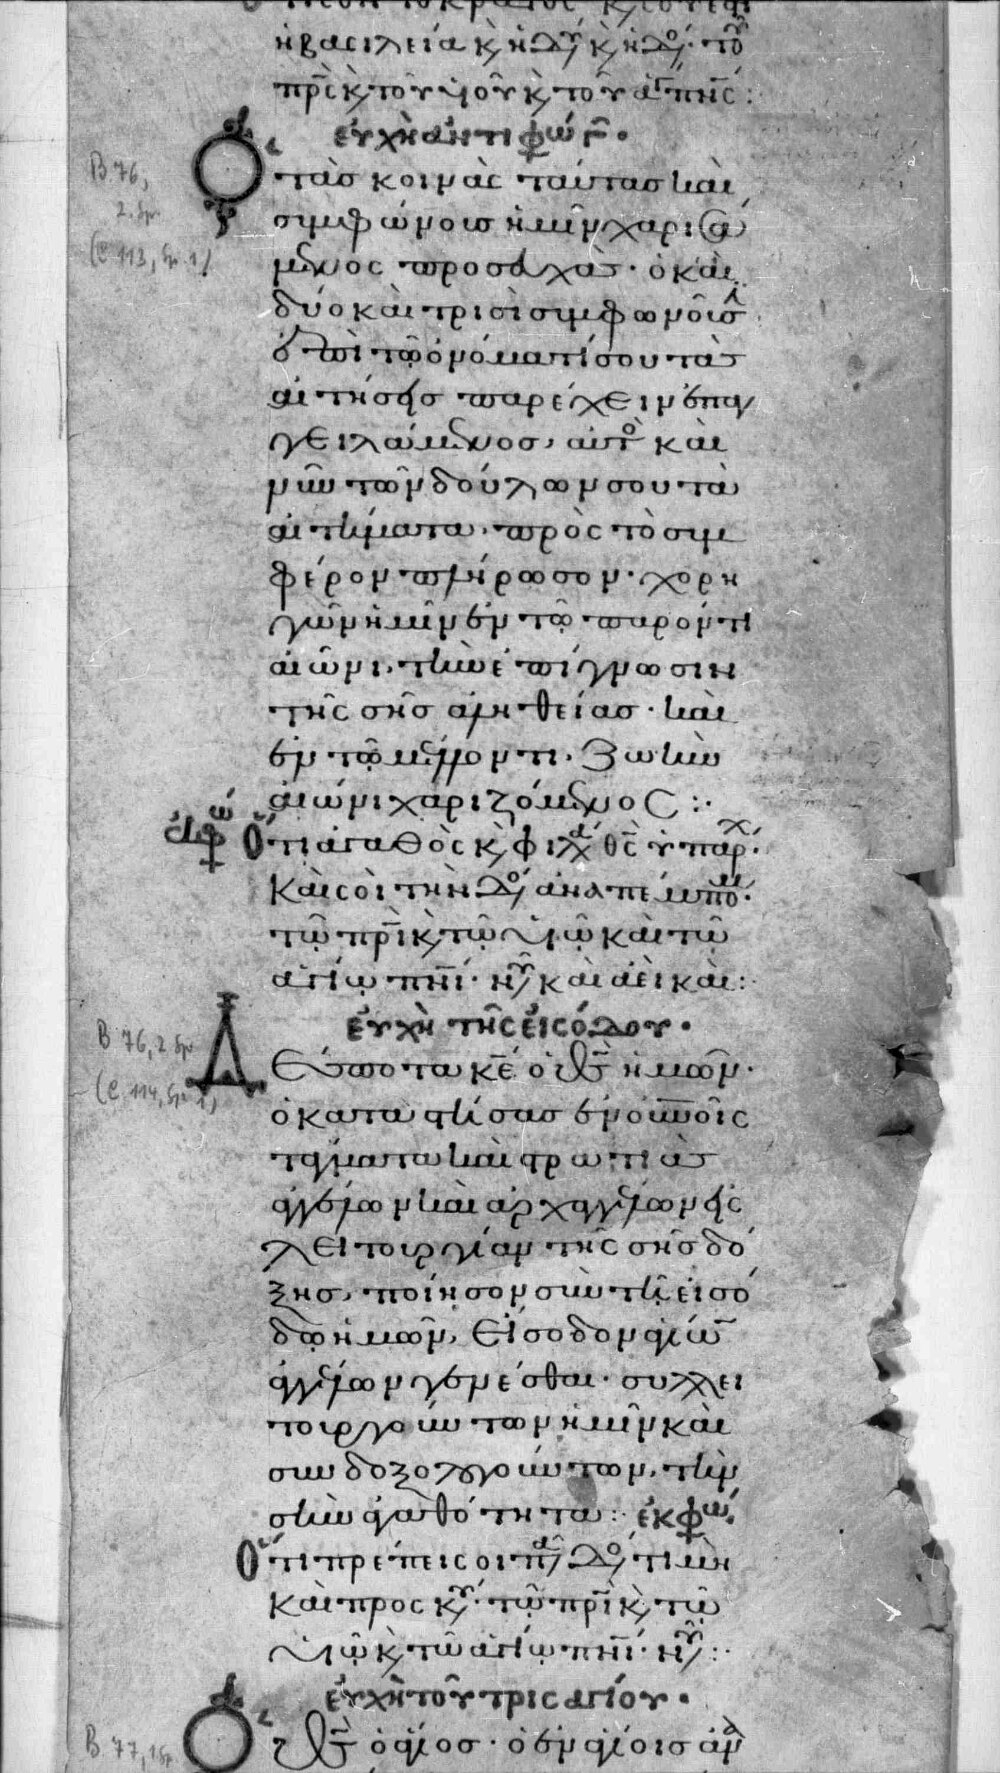 ἡ βασιλεία κ ἡ δύ κ ἡ δό. τοῦ
πρς κ τοῦ υἱοῦ κ τοῦ ἁγ πνς:
εὐχὴ ἀντιφώ γ.
Ὁ τὰς κοινὰς ταύτας καὶ
συμφώνους ἡμῖν χαρισά
μενος προσευχάς. ὁ καὶ
δύο καὶ τρισὶ συμφωνοῦσ
ἐπὶ τῷ ὀνόματί σου τὰς
αἰτήσεις παρέχειν ἐπαγ
γειλάμενος, αὐτὸ καὶ
νῦν τῶν δούλων σου τὰ
αἰτήματα, πρὸς τὸ συμ
φέρον πλήρωσον. χορη
γῶν ἡμῖν ἐν τῷ παρόντι
αἰῶνι, τὴν ἐπίγνωσιν
τῆς σῆς ἀληθείας. καὶ
ἐν τῷ μέλλοντι, ζωὴν
αἰώνι χαριζόμενος:.
ἐκφώ Ὅτι ἀγαθὸς κ φιλά θς ὑπάρχ.
Καὶ σοὶ τὴν δό ἀναπέμπομ.
τῷ πρὶ κ τῷ υἱῷ καὶ τῷ
ἁγίῳ πνι. νῦ καὶ ἀεὶ καὶ:
εὐχὴ τῆς εἰσόδου.
Δέσποτα κε ὁ θς ἡμῶν.
ὁ καταστήσας ἐν οὐνοῖς
τάγματα καὶ στρατιὰς
ἀγγέλων καὶ ἀρχαγγέλων εἰς
λειτουργίαν τῆς σῆς δό
ξης, ποίησον σὺν τῇ εἰσό
δῳ ἡμῶν, εἴσοδον ἁγίων
ἀγγέλων γενέσθαι. συλλει
τουργούντων ἡμῖν καὶ
συνδοξολογούντων, τὴν
σὴν ἀγαθότητα: ἐκφώ.
Ὅτι πρέπει σοι πᾶ δό τιμὴ
καὶ προσκύ. τῷ πρὶ κ τῷ
υἱῷ κ τῷ ἁγίῳ πνι. νῦ:.
εὐχὴ τοῦ τρισαγίου.
Ὁ θς ὁ ἅγιος. ὁ ἐν ἁγίοις ἀνα
B 76,
2. Sp.
(C 113, Sp. 1)
B 76, 2 Sp.
(C 114, Sp. 1,)
B 77, 1 Sp.